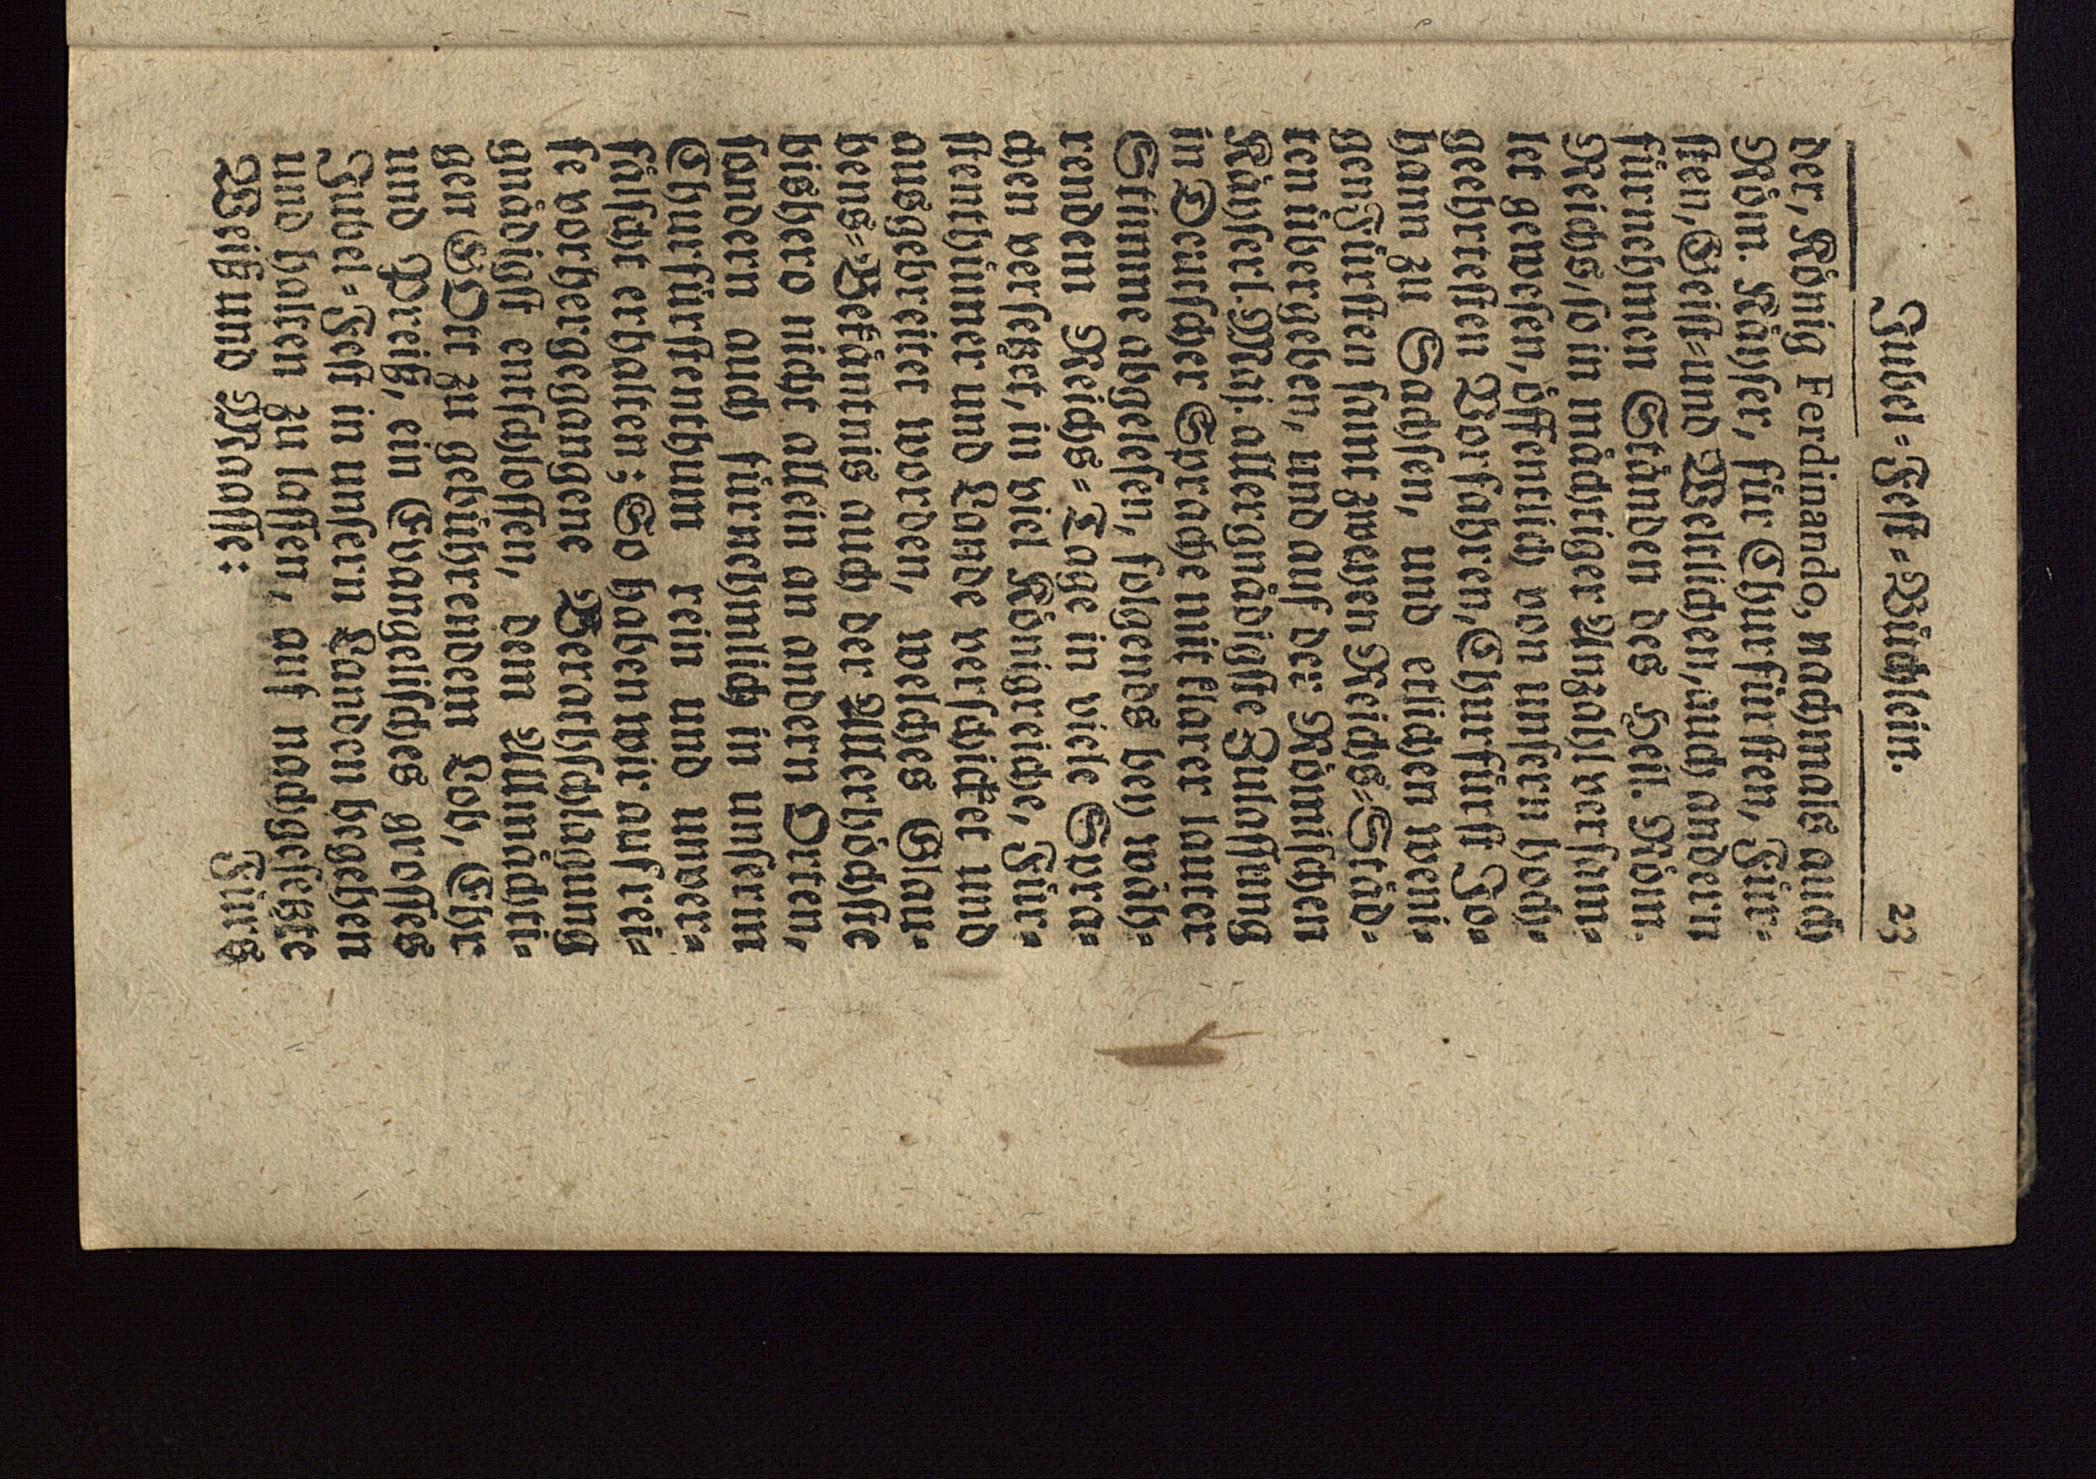 Jubel=Fest=Büchlein. 23
der, König Ferdinando, nachmals auch
Röm. Käyser, für Churfürsten, Für=
sten, Geist=und Weltlichen, auch andern
fürnehmen Ständen des Heil. Röm.
Reichs, so in mächtiger Anzahl versam=
let gewesen, öffentlich von unsern hoch=
geehrtesten Vorfahren, Churfürst Jo=
hann zu Sachsen, und etlichen weni=
gen Fürsten samt zweyen Reichs=Städ=
ten übergeben, und auf der Römischen
Käyserl. Maj. allergnädigste Zulassung
in Deutscher Sprache mit klarer lauter
Stimme abgelesen, folgends bey wäh=
rendem Reichs=Tage in viele Spra=
chen versetzet, in viel Königreiche, Für=
stenthümer und Lande verschicket und
ausgebreitet worden, welches Glau=
bens=Bekäntnis auch der Allerhöchste
bishero nicht allein an andern Orten,
sondern auch fürnehmlich in unserm
Churfürstenthum rein und unver=
fälscht erhalten; So haben wir auf rei=
fe vorhergegangene Berathschlagung
gnädigst entschlossen, dem Allmächti=
gen GOtt zu gebührendem Lob, Ehr
und Preiß, ein Evangelisches grosses
Jubel=Fest in unsern Landen begehen
und halten zu lassen, auf nachgesetzte
Weiß und Maasse:
Fürs